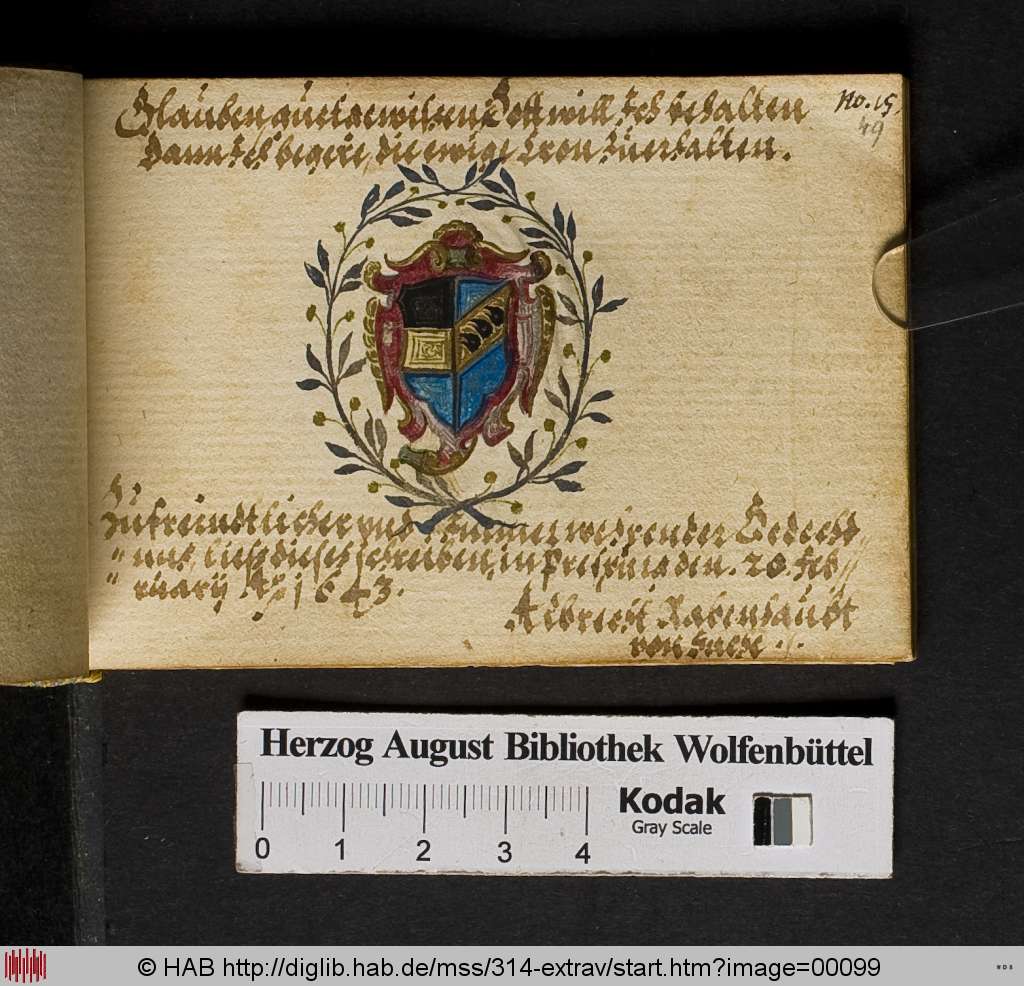 Glauben, guet gewissen Gott will Ich behalten
Dann Ich begere, die ewige Cron zuerhalten.
No. 15.
49
Zu freindtlicher vnd Immerwehrender Gedecht
nus, ließ dises schreiben, in Prespurg den. 20. Feb
ruarÿ Aº 1643.
Albrecht Rabenhaubt
von
Herzog August Bibliothek Wolfenbüttel
Kodak
Gray Scale
0 1 2 3 4
© HAB http://diglib.hab.de/mss/314-extrav/start.htm?image=00099
WDB